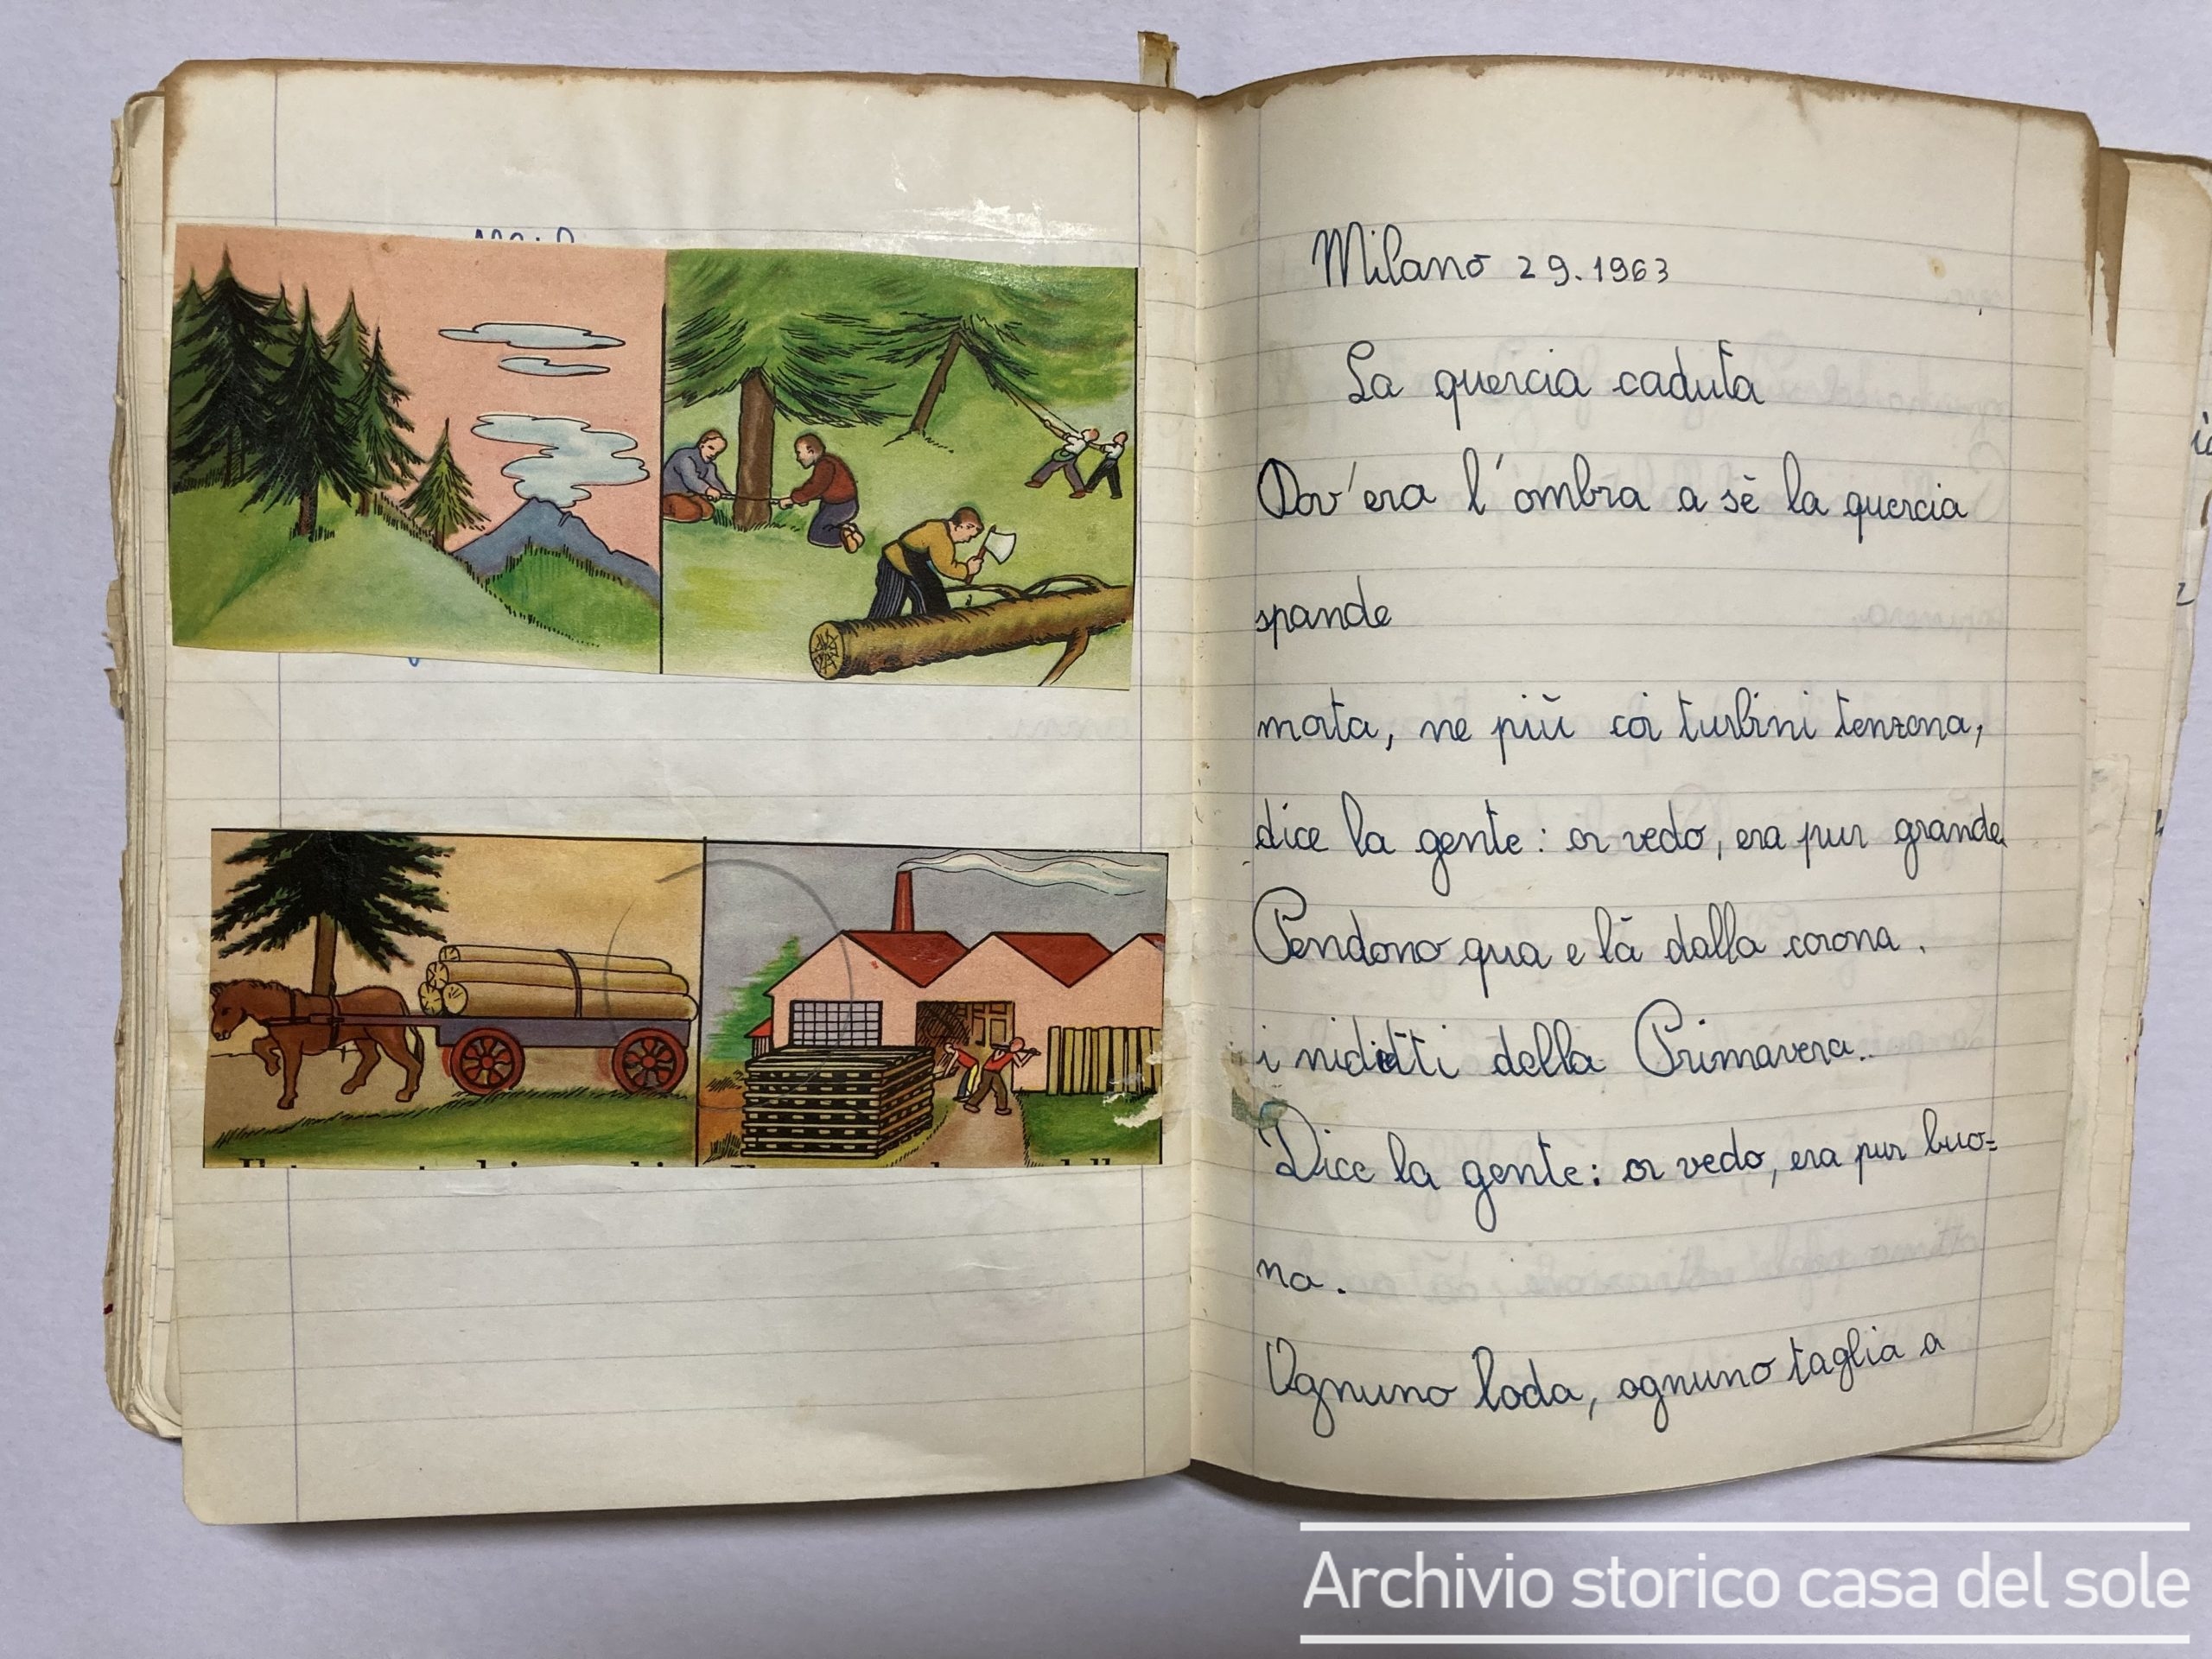 Milano 29.1963
La quercia caduta
Dov'era l'ombra a sè la quercia
spande
morta, ne più coi turbini tenzona,
dice la gente: or vedo, era pur grande
Pendono qua e là dalla corona.
i nidietti della Primavera..
Dice la gente: or vedo, era pur buo=
na.
Ognuno loda, ognuno taglia a
Archivio storico casa del sole